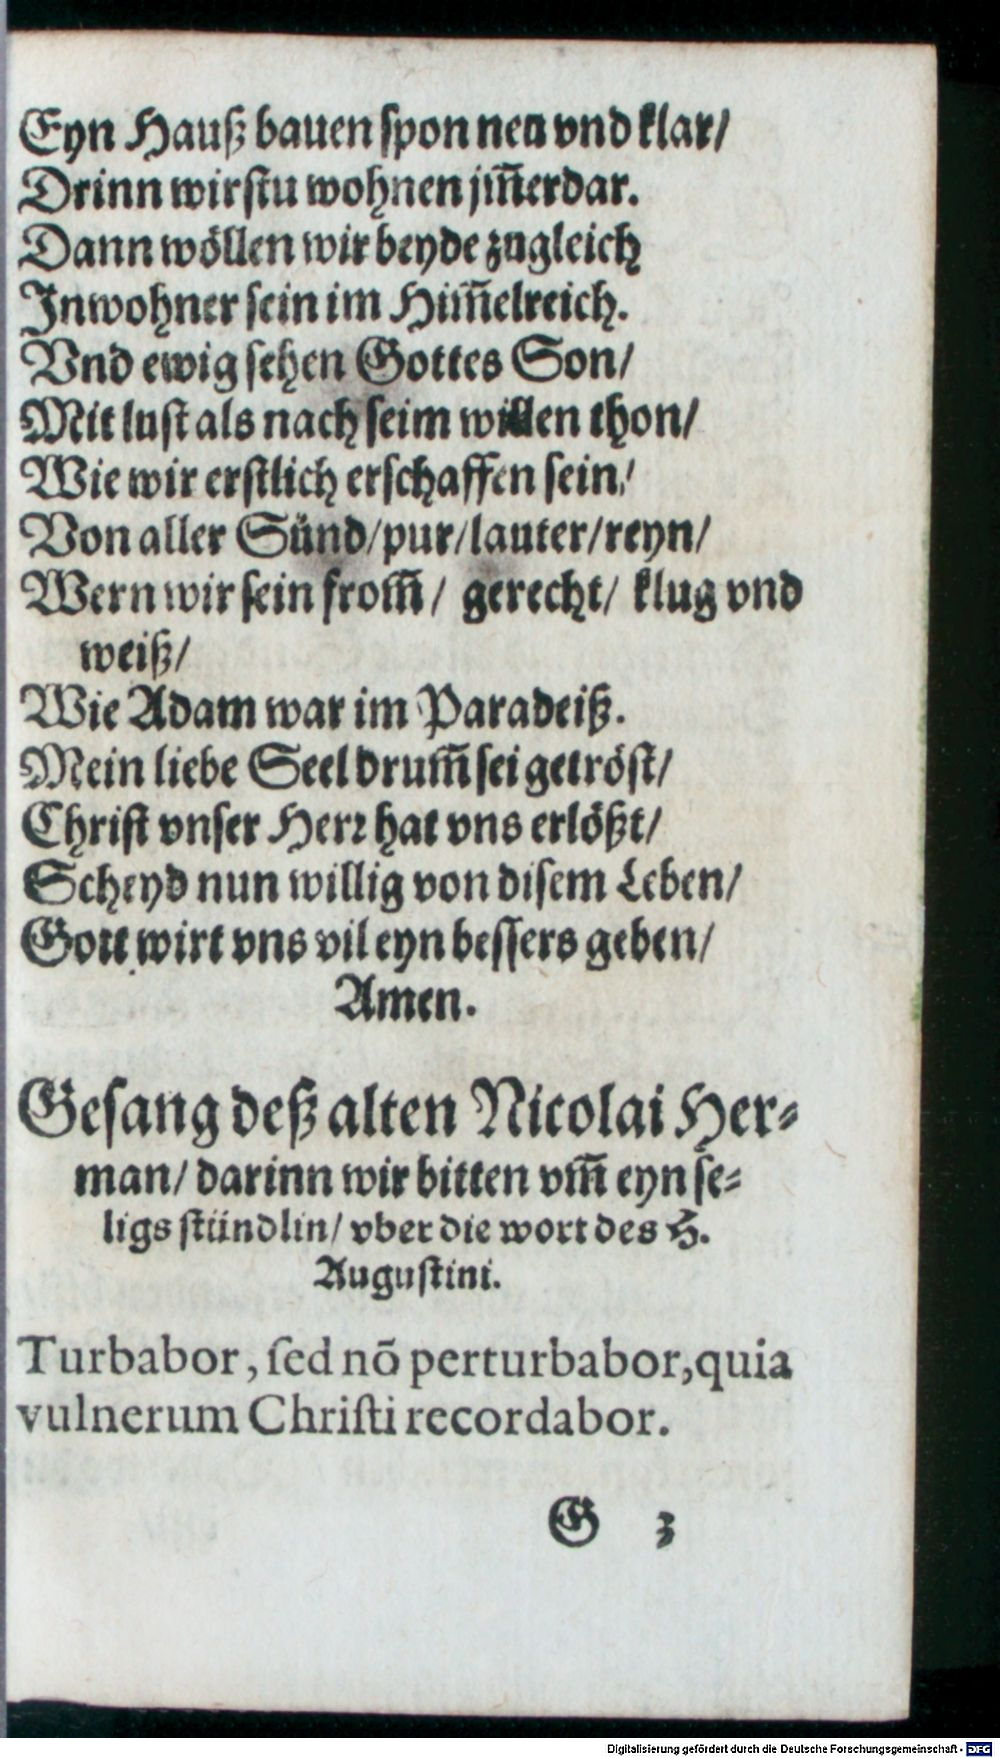 Eyn Hauß bauen spon neu vnd klar/
Drinn wirstu wohnen jm̃erdar.
Dann wöllen wir beyde zugleich
Inwohner sein im Him̃elreich.
Vnd ewig sehen Gottes Son/
Mit lust als nach seim willen thon/
Wie wir erstlich erschaffen sein/
Von aller Sünd/pur/lauter/reyn/
Wern wir sein from̃/ gerecht/ klug vnd
weiß/
Wie Adam war im Paradeiß.
Mein liebe Seel drum̃ sei getröst/
Christ vnser Herr hat vns erlößt/
Scheyd nun willig von disem Leben/
Gott wirt vns vil eyn bessers geben/
Amen.
Gesang deß alten Nicolai Her-
man/ darinn wir bitten vm̃ eyn se-
ligs stündlin/ vber die wort des H.
Augustini.
Turbabor, sed nõ perturbabor, quia
vulnerum Christi recordabor.
G 3
Digitalisierung gefördert durch die Deutsche Forschungsgemeinschaft - DFG